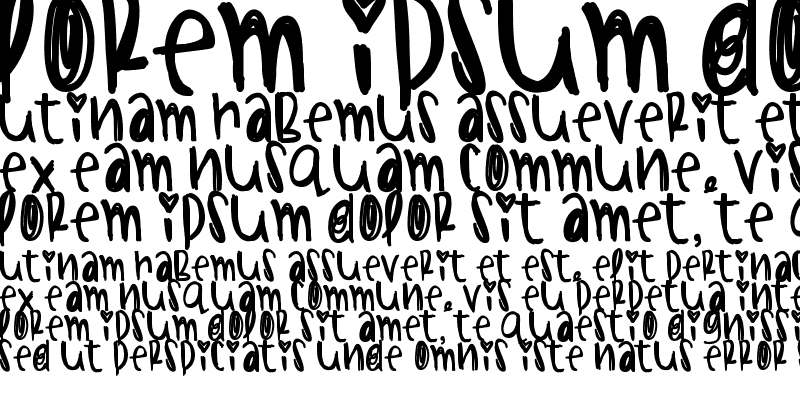 lorem ipsum do
utinam habemus assueverit et
ex eam nusquam commune, vis
lorem ipsum dolor sit amet, te
utinam habemus assueverit et est, elit pertinac
ex eam nusquam commune, vis eu perpetua inte
lorem ipsum dolor sit amet, te quaestio dignissi
sed ut perspiciatis unde omnis iste natus error